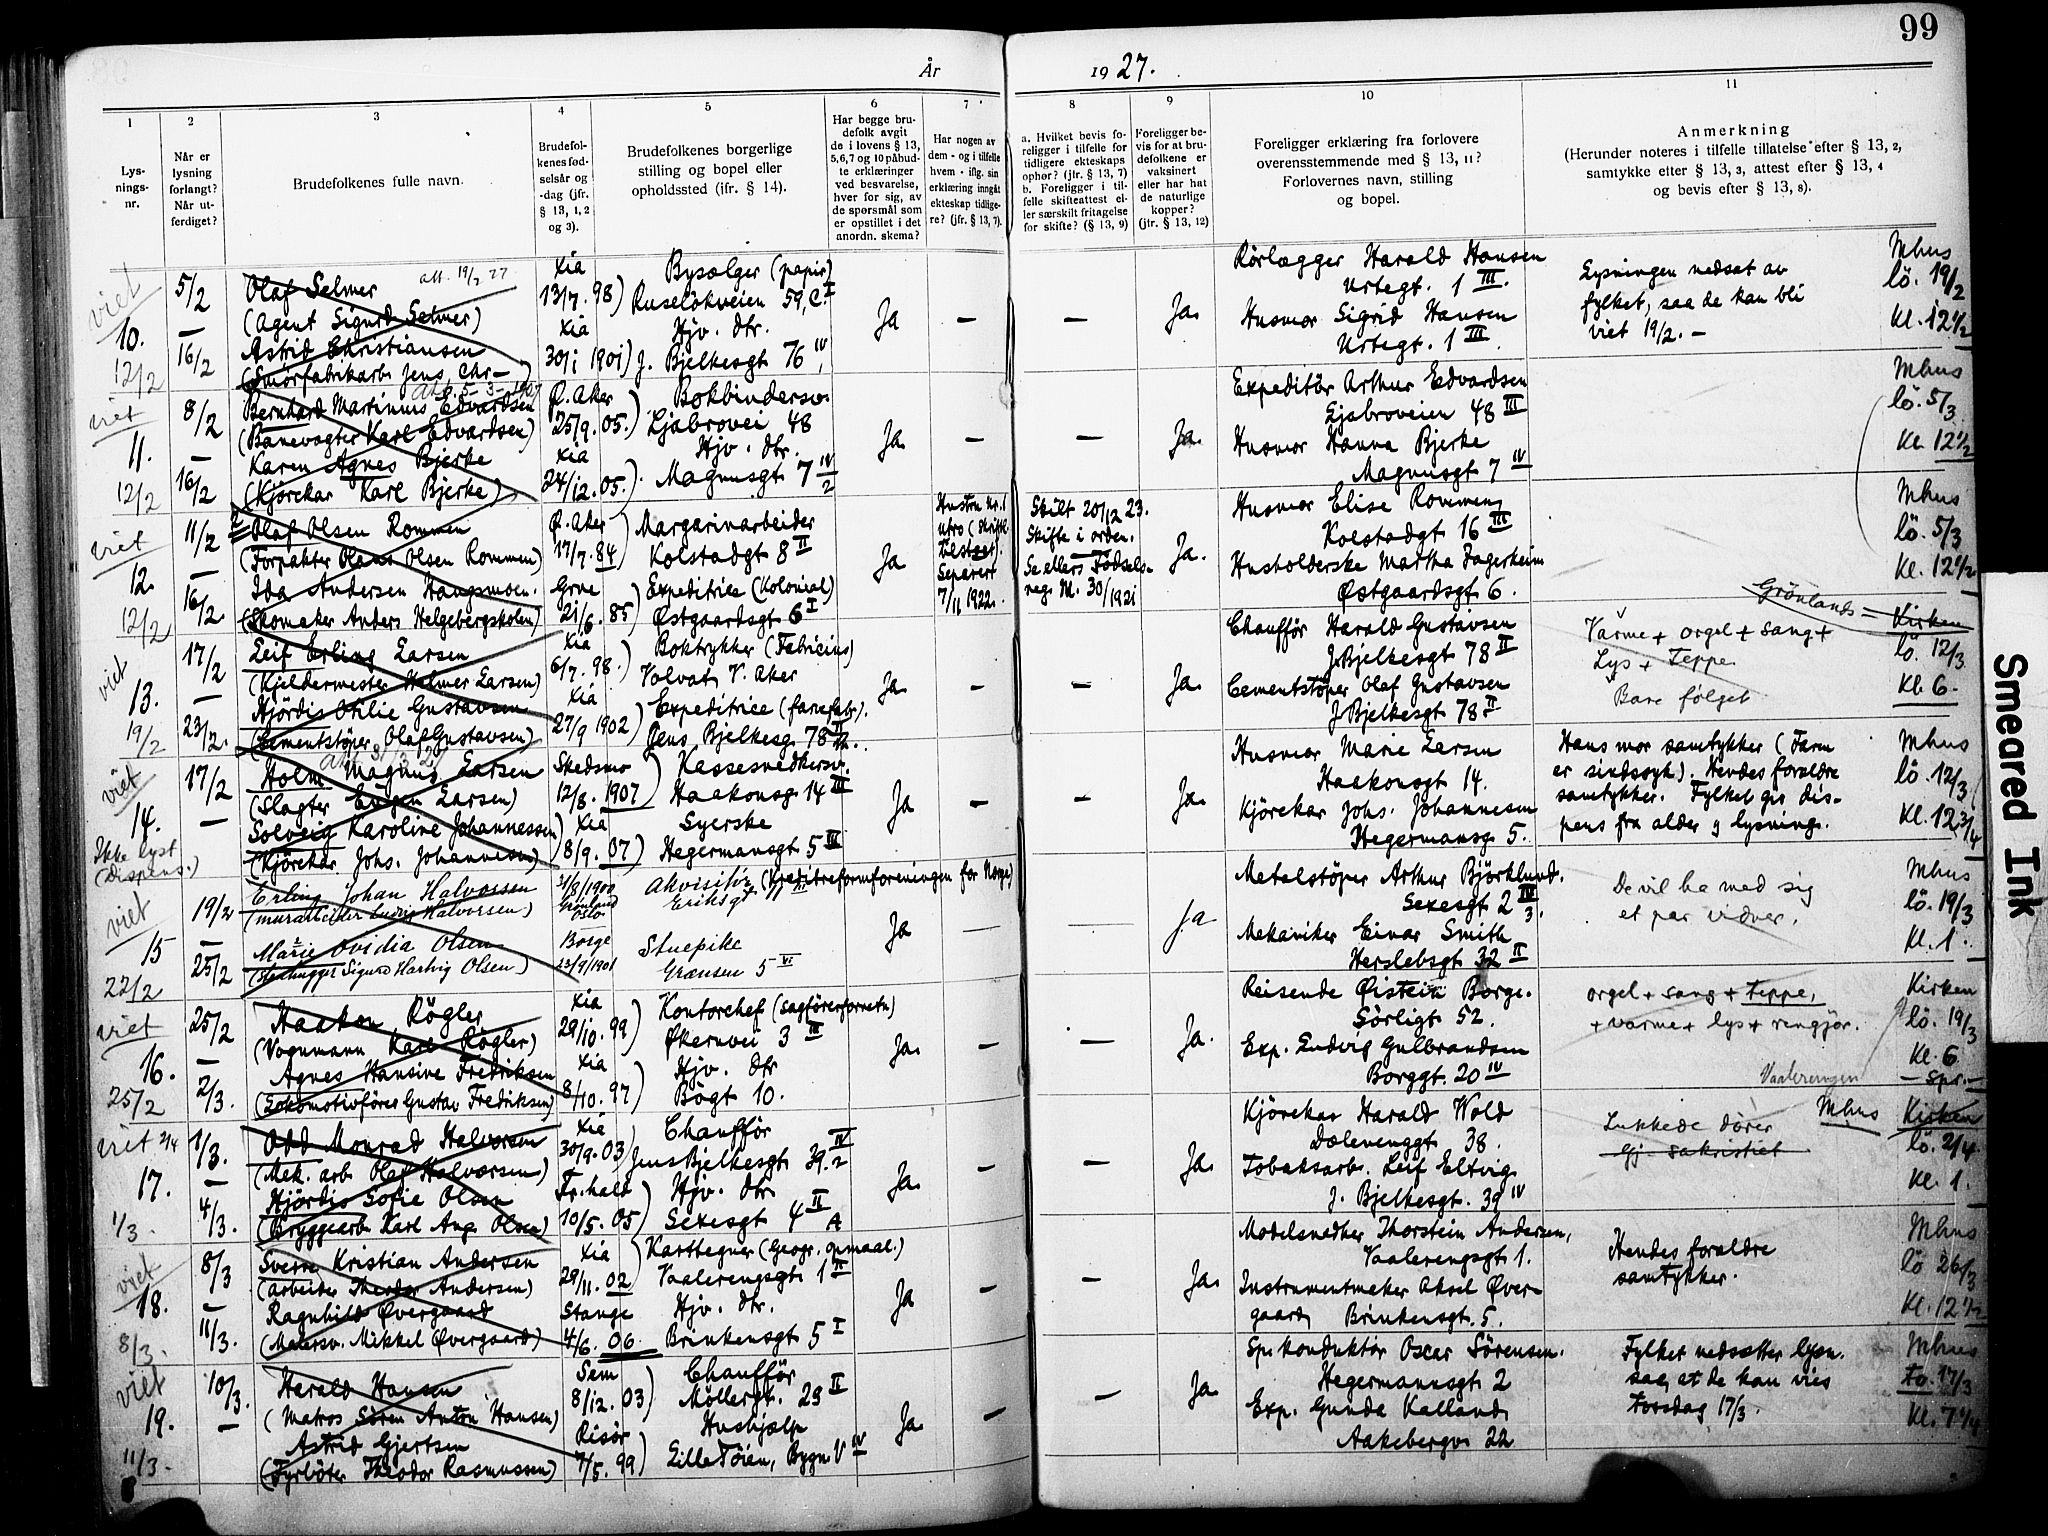 99
År 1927.
1
2
3
4
5
6
7
8
9
10
11
Lys-
nings-
nr.
Når er
lysning
forlangt?
Når ut-
ferdiget?
Brudefolkenes fulle navn.
Brudefol-
kenes fød-
selsår og
-dag (jfr.
§ 13, 1, 2
og 3).
Brudefolkenes borgerlige
stilling og bopel eller
opholdssted (jfr. § 14).
Har begge bru-
defolk avgit
de i lovens § 13,
5,6,7 og 10 påbud-
te erklæringer
ved besvarelse,
hver for sig, av
de spørsmål som
er opstillet i det
anordn. skema?
Har nogen av
dem - og i tilfelle
hvem - iflg. sin
erklæring inngåt
ekteskap tidlige-
re? (jfr. § 13, 7).
a. Hvilket bevis fo-
religger i tilfelle for
tidligere ekteskaps
ophør? (jfr. § 13, 7)
b. Foreligger i til-
felle skifteattest el-
ler særskilt fritagelse
for skifte? (§ 13, 9)
Foreligger be-
vis for at bru-
defolkene er
vaksinert
eller har hat
de naturlige
kopper?
(jfr. § 13, 12)
Foreligger erklæring fra forlovere
overensstemmende med § 13, 11?
Forlovernes navn, stilling
og bopel.
Anmerkning
(Herunder noteres i tilfelle tillatelse efter § 13, 2,
samtykke etter § 13, 3, attest efter § 13, 4
og bevis efter § 13, 8).
viet
10.
12/2
5/2
—
16/2
Olaf Selmer att. 19/2 27
(Agent Sigurd Selmer)
Astrid Christiansen
(Smörfabrikarb. Jens Chr—)
Kia
13/7. 98)
Kia
30/1 1901)
Bysælger (papir)
Ruselökveien 59, C. I
Hjv. dtr.
J. Bjelkesgt 76 IV
Ja
—
—
Ja.
Rörlægger Harald Hansen
Urtegt. 1 III.
Husmor Sigrid Hansen
Urtegt. 1 III.
Lysningen nedsat av
fylket, saa de kan bli
viet 19/2. —
Mhus
lö. 19/2
Kl. 12 1/2
viet
11.
12/2
8/2
—
16/2
att. 5-3-1927
Bernhard Martinius Edvardsen
(Banevogter Karl Edvardsen)
Karen Agnes Bjerke
(Kjörekar Karl Bjerke)
Ø. Aker
25/9. 05.)
Kia
24/12. 05.)
Bokbindersv.
Ljabrovei 48
Hjv. dtr.
Magnusgt 7 IV 2
Ja.
—
—
Ja.
Expeditör Arthur Edvardsen
Ljabroveien 48 III
Husmor Hanna Bjerke
Magnusgt 7 IV
Mhus
lö. 5/3
Kl 12 1/2
viet
12.
12/2
11/2
—
16/2
Olaf Olsen Rommen
(Forpakter Olaus Olsen Rommen)
Ida Andersen Haugsmoen.
(Skomaker Anders Helgebergskolen)
Ø. Aker
17/7. 84
Grue
21/6. 85)
Margarinarbeider
Kolstadgt 8 II
Expeditrice (Kolonial)
Østgaardsgt 6 I
Ja
Hustru Nr. 1
utro (skriftl.
tilstaat).
Separert
7/11 1922.
Skilt 20/12 23.
Skifte i orden.
Se ellers Födsels-
reg. M. 30/1921
Ja.
Husmor Elise Rommen
Kolstadgt 16 III
Husholderske Martha Fagerheim
Østgaardsgt 6.
Mhus
lö. 5/3
Kl. 12 1/2
viet
13.
19/2
17/2
23/2.
Leif Erling Larsen
(Kjeldermester Halmer Larsen)
Hjördis Otilie Gustavsen
(Cementstöper Olaf Gustavsen)
Kia
6/7. 98.)
Kia
27/9 1902)
Boktrykker (Fabricius)
Volvat, V. Aker
Expeditrice (farvefabr.).
Jens Bjelkesg. 78 II
Ja.
—
—
Ja.
Chaufför Harald Gustavsen
J. Bjelkesgt 78 II
Cementstöper Olaf Gustavsen
J. Bjelkesgt 78 II
Varme + orgel + sang +
Lys + Teppe
Bare følget
Grönlands =
Kirken
lö. 12/3
Kl. 6.
viet
14.
Ikke lyst
(Dispens.)
17/2
—
att 31/3 27
Holm Magnus Larsen
(Slagter Eugen Larsen)
Solveig Karoline Johannessen
(Kjörekar Johs. Johannesen)
Skedsmo
12/8. 1907
Kia
8/9. 07)
Kassesnedkersv.
Haakonsg. 14 III
Syerske
Hegermansgt 5 III
Ja
—
—
Ja.
Husmor Marie Larsen
Haakonsgt 14.
Kjörekar Johs. Johannesen
Hegermansg. 5.
Hans mor samtykker (Farm
er sindssyk). Hendes foraldre
samtykker. Fylket gir dis-
pens fra alder og lysning.
Mhus
lö. 12/3
Kl. 12 3/4
viet
15
22/2
19/2
—
25/2
Erling Johan Halvorsen
(murarbeider Ludvig Halvorsen)
Marie Ovidia Olsen
(Stenhugger Sigurd Hartvig Olsen)
31/8/1900
Grønland
Oslo
Borge
23/9/1901
Akvisitör (Kreditreformforeningen for Norge)
Stuepike
Grænsen 5 VI
Ja
—
—
Ja
Metalstöper Arthur Björklund.
Sexesgt 2 IV 3.
Mekaniker Einar Smith
Herslebsgt 32 II
De vil ha med sig
et par vidner.
Mhus
lö. 19/3
Kl. 1.
viet
16.
25/2
25/2
—
2/3.
Haakon Rögler
(Vognmann Karl Rögler)
Agnes Hansine Fredriksen
(Lokomotivförer Gustav Fredriksen)
Kia
29/10. 99)
Kia
8/10. 97)
Kontorchef (sagförerforretn)
Økernvei 3 III
Hjv. dtr
Bögt 10.
Ja.
—
—
Ja.
Reisende Øistein Borge.
Sörligt 52.
Exp. Ludvig Gulbrandsen
Borggt. 20 IV
orgel + sang + teppe,
+ varme + lys + rengjör.
Vaalerengen
Kirken
lö. 19/3
Kl. 6
— Spr. —
viet 2/4
17.
1/3.
1/3.
—
4/3.
Odd Monrad Halvorsen
(Mek. arb. Olaf Halvorsen)
Hjördis Sofie Olsen
(Bryggearb. Karl Aug. Olsen)
Kia
30/9. 03)
Fr.hald
10/5. 05)
Chaufför
Jens Bjelkesgt 39. IV 2
Hjv. dtr
Sexesgt 4 II A
Ja.
—
—
Ja.
Kjörekar Harald Wold
Dælenenggt. 38.
Tobaksarb. Leif Eltvig
J. Bjelkesgt. 39 IV
Lukkede dörer
Gj. sakristiet
Mhus
Kirken
lö. 2/4
Kl. 1.
viet
18.
8/3.
8/3
—
11/3.
Sverre Kristian Andersen
(Arbeider Theodor Andersen)
Ragnhild Øvergaard
(Malersv. Mikkel Øvergaard)
Kia
29/11. 02
Stange
4/6. 06
Karttegner (Geogr. opmaal.)
Vaalerengsgt 1 II
Hjv. dtr.
Brinkensgt 5 I
Ja
—
—
Ja.
Modelsnedker Thorstein Andersen,
Vaalerengsgt 1.
Instrumentmaker Aksel Øver-
gaard, Brinkensgt. 5.
Hendes foraldre
samtykker.
Mhus
lö 26/3
Kl. 12 1/2
viet
19.
11/3.
10/3.
—
Harald Hansen
(Matros Sören Anton Hansen)
Astrid Gjertsen
(Fyrböter Theodor Rasmussen)
Sem
8/12. 03)
Risör
7/5. 99)
Chaufför
Möllergt. 29 II
Hushjælp
Lille Töien, Bygn. V IV
Ja.
—
—
Ja
Sp.konduktör Oscar Sörensen.
Hegermannsgt 2
Exp. Gunda Kalland,
Aakebergv. 22
Fylket nedsætter lysn.
saa, at de kan vies
Torsdag 17/3.
Mhus
to. 17/3
Kl. 7 1/4
Smeared Ink